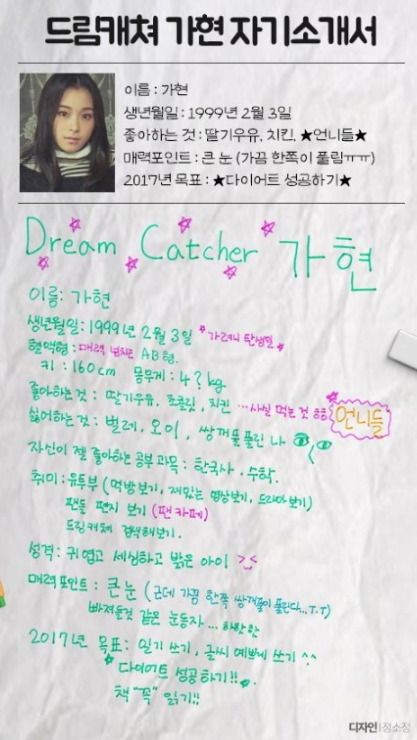 드림캐쳐 가현 자기소개서
이름 : 가현
생년월일 : 1999년 2월 3일
좋아하는 것 : 딸기우유, 치킨, ★언니들★
매력포인트 : 큰 눈 (가끔 한쪽이 풀림ㅠㅠ)
2017년 목표 : ★다이어트 성공하기★
Dream Catcher 가현
이름: 가현
생년월일: 1999년 2월 3일 *가현이 탄생일
혈액형: 매력 넘치는 AB형.
키 : 160cm 몸무게: 4?kg
좋아하는것 : 딸기우유, 초콜릿, 치킨 ...사실 먹는 것 ㅎㅎ 언니들
싫어하는것 : 벌레, 오이, 쌍꺼풀풀린 나
자신이 젤 좋아하는 공부 과목 : 한국사, 수학.
취미 : 유투부 (먹방보기, 재밌는 영상보기, 드라마 보기)
팬들 편지 보기 (팬카페)
드림캐쳐 검색해보기.
성격 : 귀엽고 세심하고 밝은 아이 >.<
매력포인트 : 큰 눈 (근데 가끔 한쪽 쌍꺼풀이 풀린다...T.T)
빠져들것 같은 눈동자...하핳핳
2017년 목표: 일기 쓰기, 글씨 예쁘게 쓰기 ^^
*다이어트 성공하기!!*
책 "꼭" 읽기!!
디자인 | 정소정